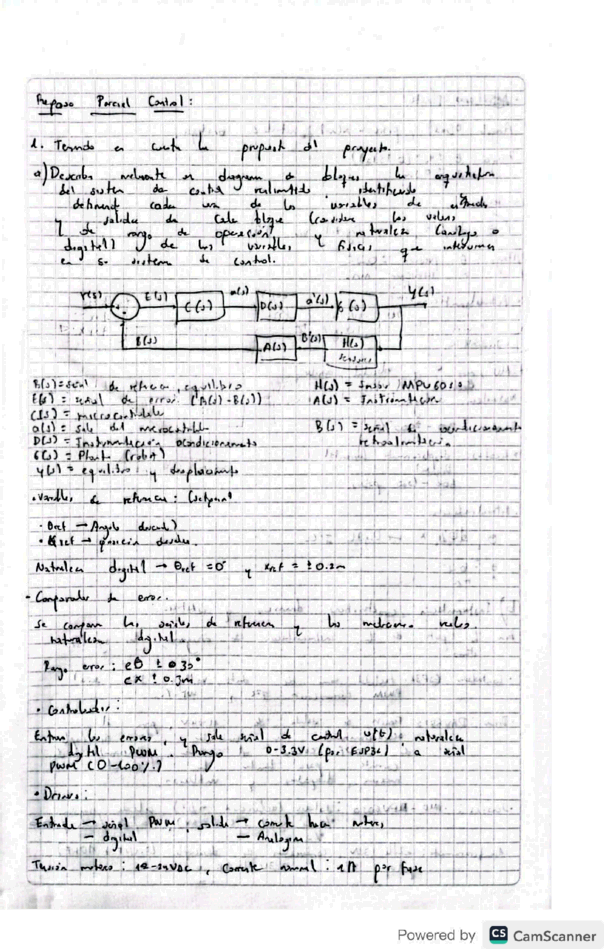 Repaso Parcial Control:
1. Teniendo en cuenta la propuesta del proyecto.
a) Describa mediante un diagrama de bloques la arquitectura
del sistema de control realimentado identificando
definiendo cada una de las variables de entrada
y salida de cada bloque (considere los valores
de rango de operación) y naturaleza (análoga o
digital) y de las variables físicas que intervienen
en su sistema de control.
r(s) E(s) C(s) a(s) D(s) a'(s) G(s) Y(s)
B(s) A(s) B'(s) H(s)
R(s) = señal de referencia, equilibrio
E(s) = señal de error (R(s)-B(s))
C(s) = microcontrolador
a(s) = sale del microcontrolador
D(s) = Instrumentación acondicionamiento
G(s) = Planta (robot)
y(s) = equilibrio y desplazamiento
H(s) = Sensor MPU6050
A(s) = Instrumentación
B(s) = señal de acondicionamiento
retroalimentación
• Variables de referencia: (setpoint
• θref → Angulo deseado)
• Xref → posición deseada.
Naturaleza digital → θref = 0° y xref = ±0.3m
- Comparador de error.
Se comparan las señales de referencia y las mediciones reales.
naturaleza digital
Rango error: eθ ± 030°
ex ± 0.3m
• Controlador:
Entran los errores, y sale señal de control u(t) naturaleza
digital PWM. Rango 0-3.3V (por ESP32) a señal
PWM (0-100%)
• Drivers:
Entrada → señal PWM, salida → corriente hacia motores
— digital — Analogica
Tensión motores: 12-24VDC, Corriente nominal: 1A por fase
Powered by CS CamScanner